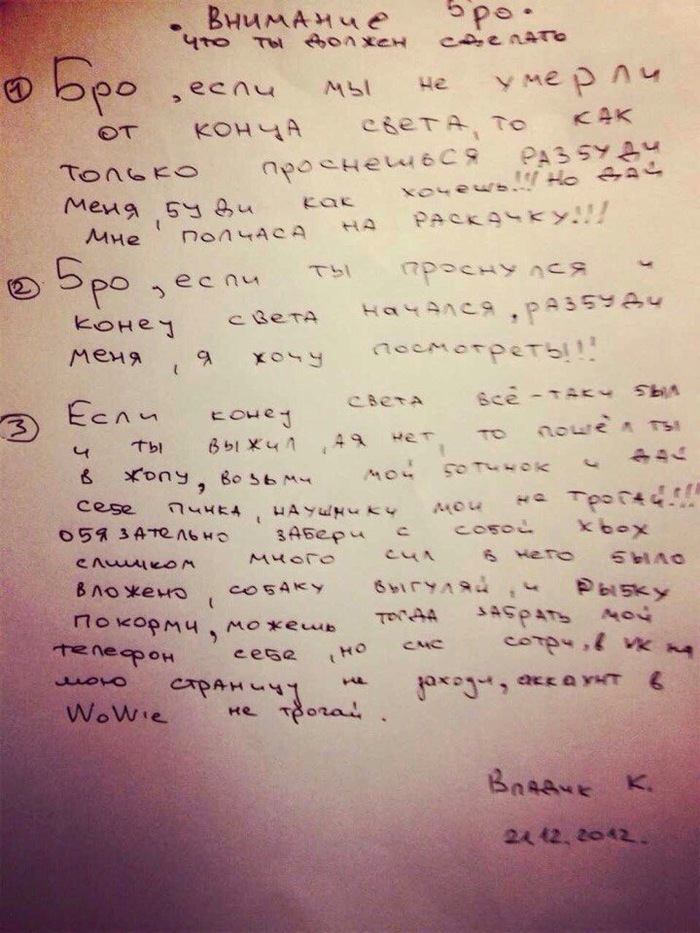 . Внимание Бро.
что ты должен сделать
① Бро, если мы не умерли
от конца света, то как
только проснешься разбуди
меня, буди как хочешь!!! Но дай
мне полчаса на раскачку!!!
② Бро, если ты проснулся и
конец света начался, разбуди
меня, я хочу посмотреть!!!
③ Если конец света всё-таки был
и ты выжил, а я нет, то пошёл ты
в жопу, возьми мой ботинок и дай
себе пинка, наушники мои не трогай!!!
обязательно забери с собой xbox
слишком много сил в него было
вложено, собаку выгуляй, и рыбку
покорми, можешь тогда забрать мой
телефон себе, но смс сотри, в VK на
мою страницу не заходи, аккаунт в
WoWie не трогай.
Владик К.
21.12.2012.